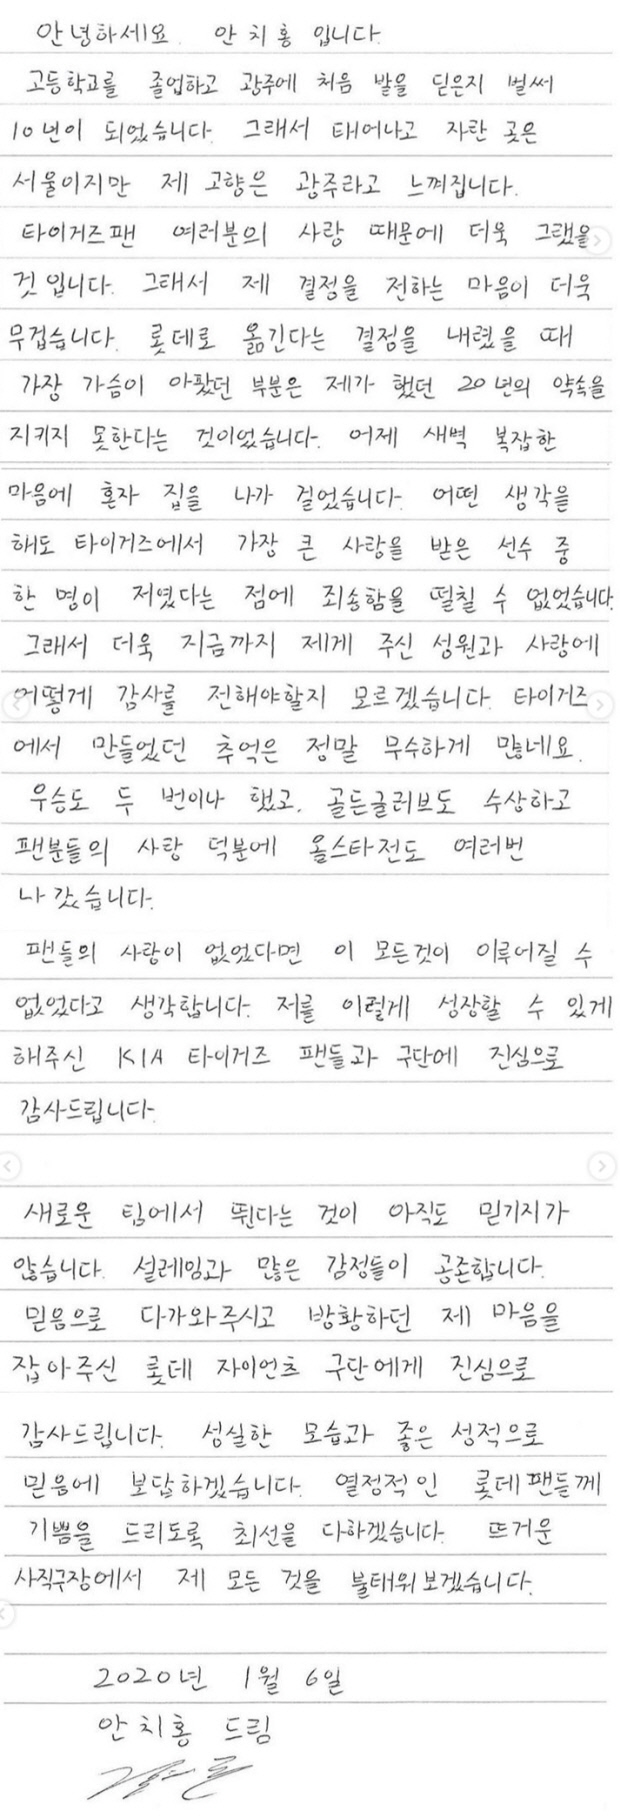 안녕하세요. 안치홍 입니다.
고등학교를 졸업하고 광주에 처음 발을 딛은지 벌써
10년이 되었습니다. 그래서 태어나고 자란 곳은
서울이지만 제 고향은 광주라고 느껴집니다.
타이거즈팬 여러분의 사랑 때문에 더욱 그랬을
것 입니다. 그래서 제 결정을 전하는 마음이 더욱
무겁습니다. 롯데로 옮긴다는 결정을 내렸을 때
가장 가슴이 아팠던 부분은 제가 했던 20년의 약속을
지키지 못한다는 것이었습니다. 어제 새벽 복잡한
마음에 혼자 집을 나가 걸었습니다. 어떤 생각을
해도 타이거즈에서 가장 큰 사랑을 받은 선수 중
한 명이 저였다는 점에 죄송함을 떨칠 수 없었습니다.
그래서 더욱 지금까지 제게 주신 성원과 사랑에
어떻게 감사를 전해야할지 모르겠습니다. 타이거즈
에서 만들었던 추억은 정말 무수하게 많네요.
우승도 두 번이나 했고, 골든글러브도 수상하고
팬분들의 사랑 덕분에 올스타전도 여러번
나갔습니다.
팬들의 사랑이 없었다면 이 모든것이 이루어질 수
없었다고 생각합니다. 저를 이렇게 성장할 수 있게
해주신 KIA 타이거즈 팬들과 구단에 진심으로
감사드립니다.
새로운 팀에서 뛴다는 것이 아직도 믿기지가
않습니다. 설레임과 많은 감정들이 공존합니다.
믿음으로 다가와주시고 방황하던 제 마음을
잡아주신 롯데 자이언츠 구단에게 진심으로
감사드립니다. 성실한 모습과 좋은 성적으로
믿음에 보답하겠습니다. 열정적인 롯데팬들께
기쁨을 드리도록 최선을 다하겠습니다. 뜨거운
사직구장에서 제 모든 것을 불태워보겠습니다.
2020년 1월 6일
안치홍 드림